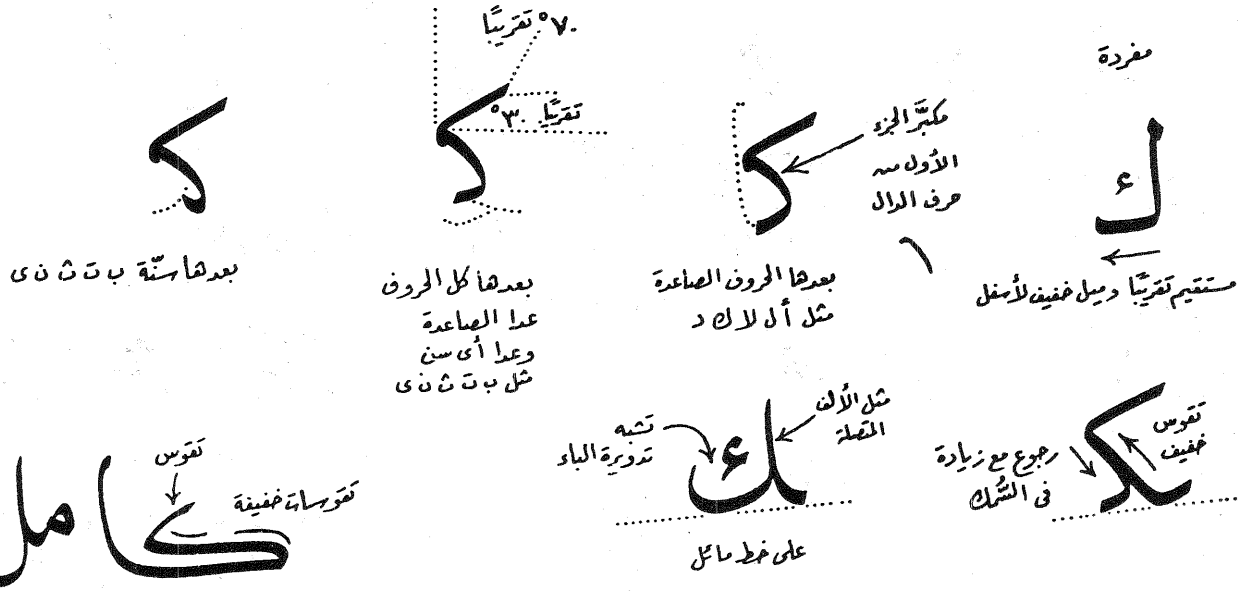 مفردة
ك
مستقيم تقريبًا وميل خفيف لأسفل
كـ
مكبَّر الجزء
الأول من
حرف الدال
بعدها الحروف الصاعدة
مثل أ ل لا ك د
٧٠° تقريبًا
٣٠° تقريبًا
كـ
بعدها كل الحروف
عدا الصاعدة
وعدا أى سن
مثل ب ت ث ن ى
كـ
بعدها سنّة ب ت ث ن ى
تقوس
خفيف
رجوع مع زيادة
فى السُّمك
ـكـ
مثل الألف
المتصلة
تشبه
تدويرة الباء
ـك
على خط مائل
تقوس
تقوسات خفيفة
كامل